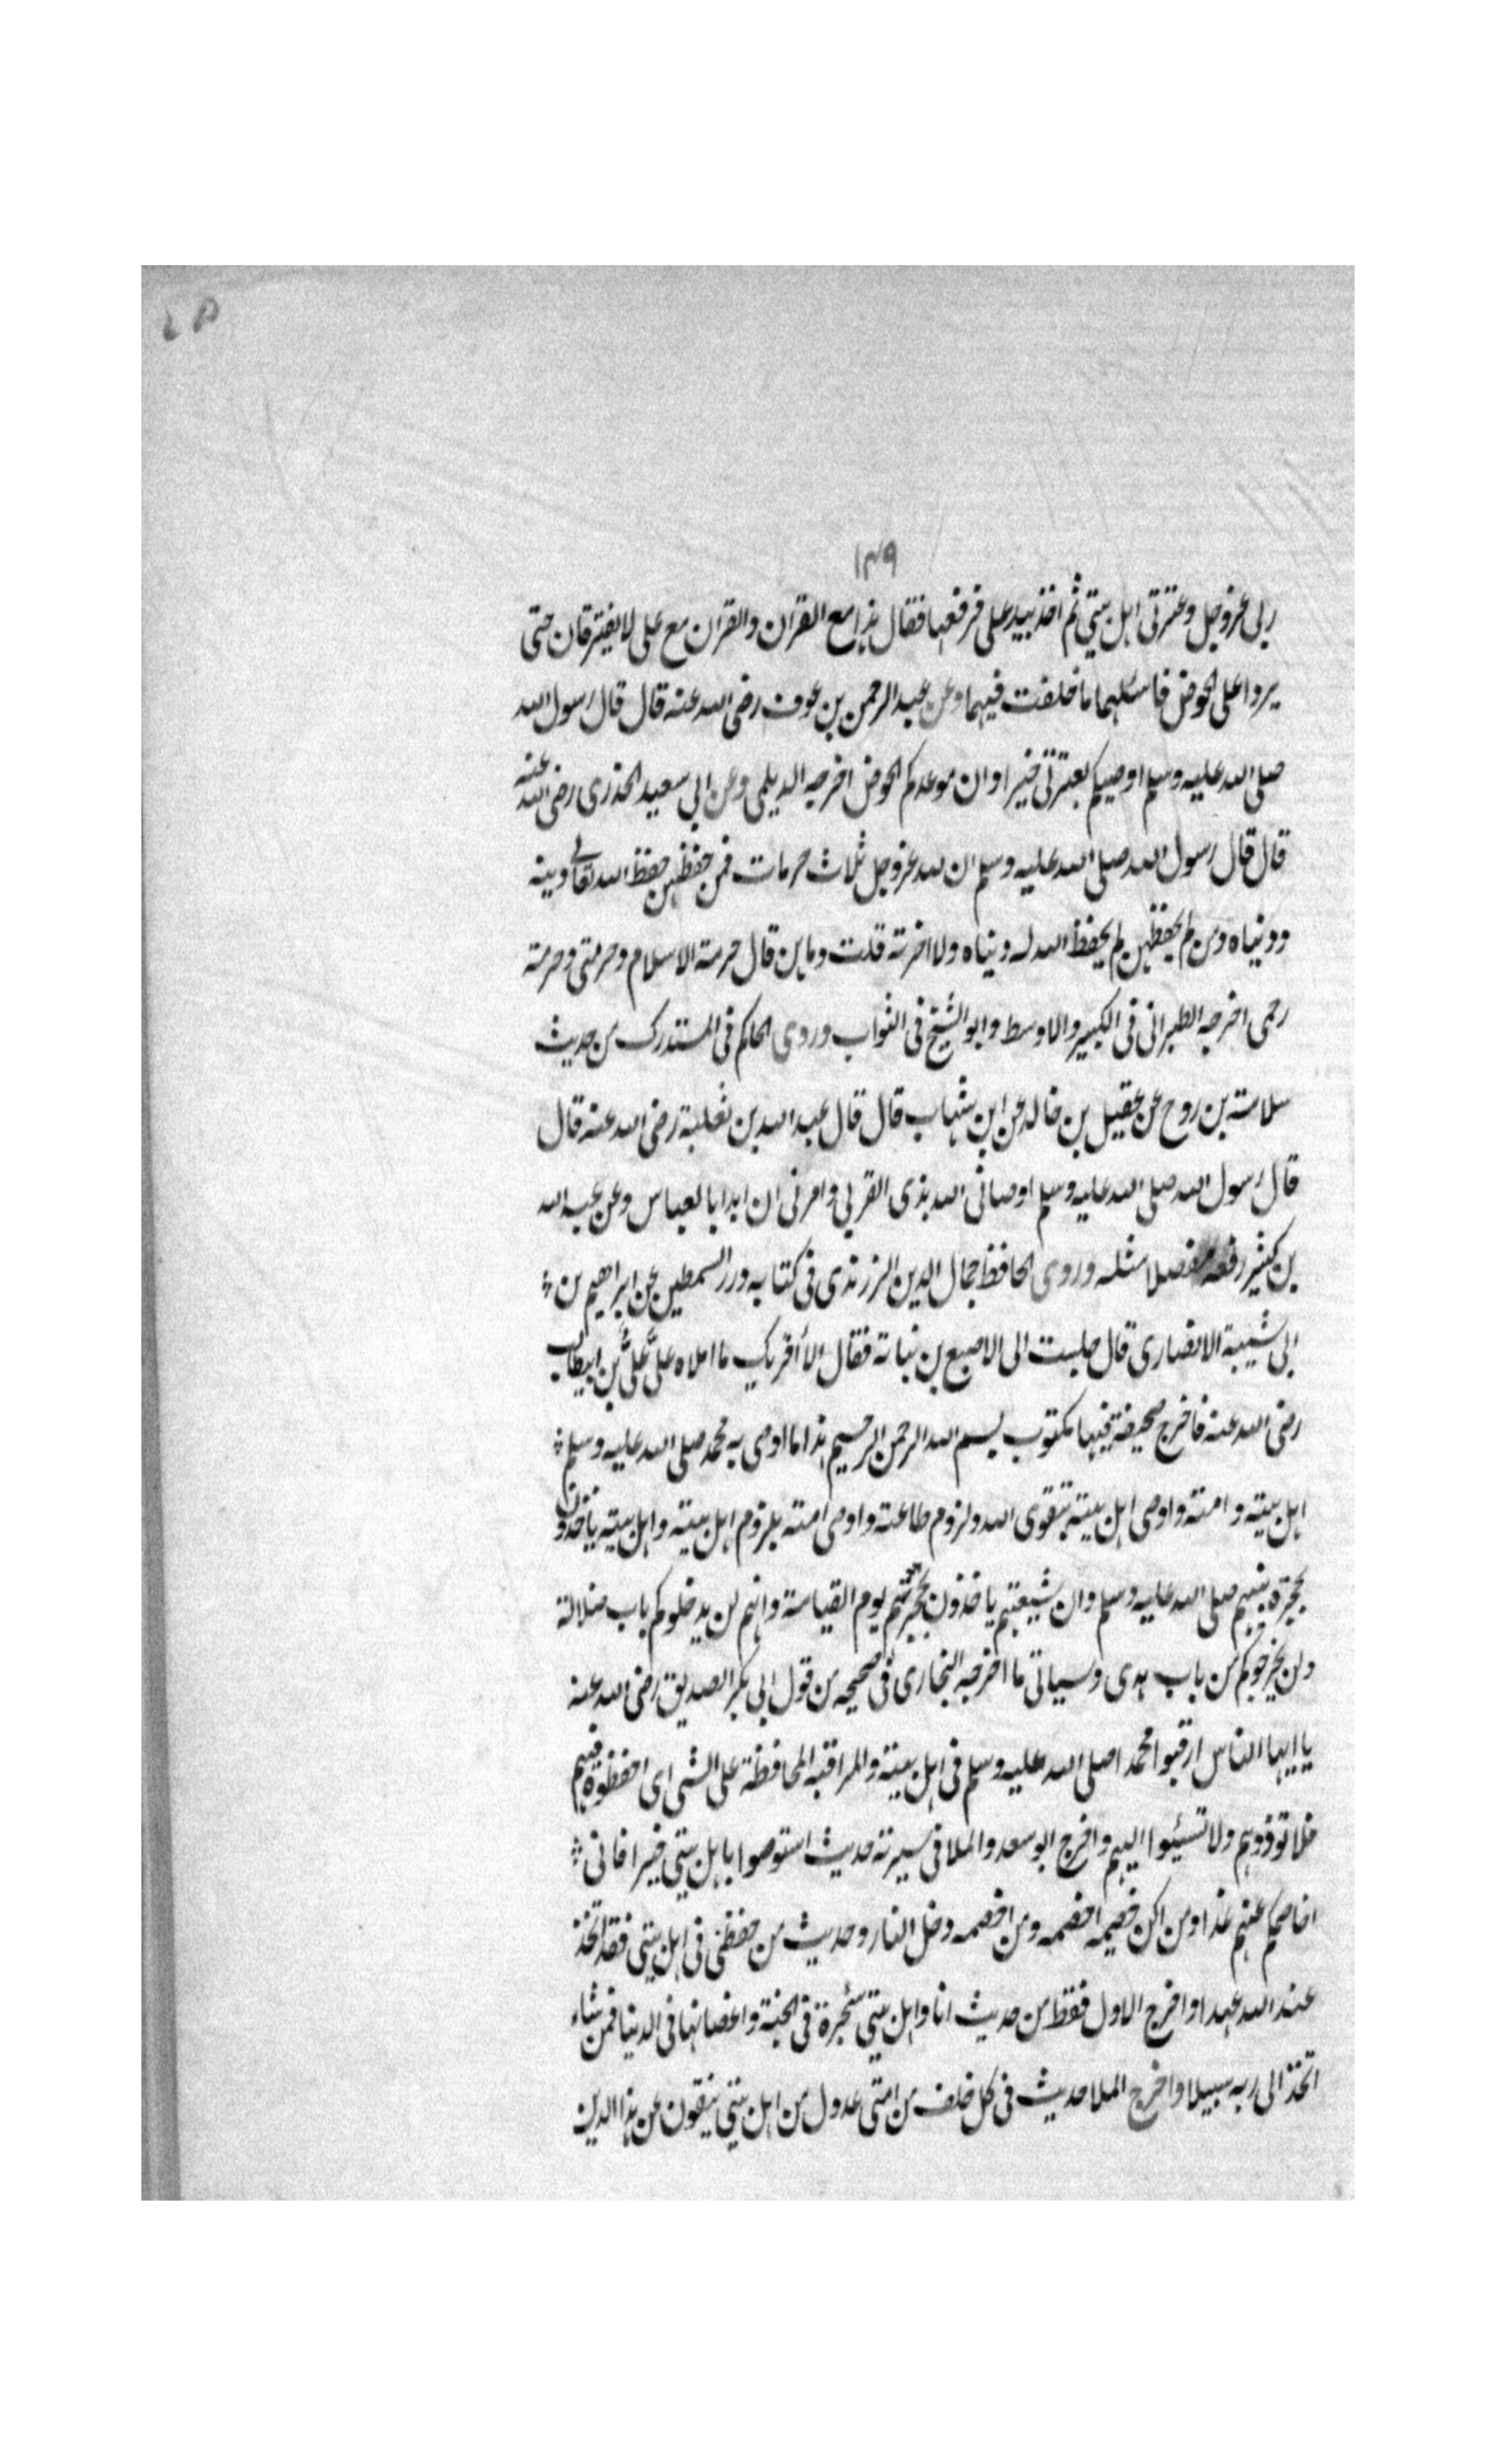 ١٣٩
ربى عزوجل وعترتى اهل بيتي ثم اخذ بيد على فرفعها فقال هذا مع القران والقران مع على لا يفترقان حتى
يردا على الحوض فاسئلهما ما خلفت فيهما وعن عبد الرحمن بن عوف رضى الله عنه قال قال رسول الله
صلى الله عليه وسلم اوصيكم بعترتى خيرا وان موعدكم الحوض اخرجه الديلمى وعن ابي سعيد الخدرى رضى الله عنه
قال قال رسول الله صلى الله عليه وسلم ان لله عزوجل ثلاث حرمات فمن حفظهن حفظ الله تعالى دينه
ودنياه ومن لم يحفظهن لم يحفظ الله له دنياه ولا اخرته قلت وما هن قال حرمة الاسلام وحرمتى وحرمة
رحمى اخرجه الطبرانى فى الكبير والاوسط وابو الشيخ فى الثواب وروى الحاكم فى المستدرك من حديث
سلامة بن روح عن عقيل بن خالد عن ابن شهاب قال قال عبد الله بن ثعلبة رضى الله عنه قال
قال رسول الله صلى الله عليه وسلم اوصانى الله بذى القربي وامرنى ان ابدا بالعباس وعن عبد الله
بن كثير رفعه مفصلا مثله وروى الحافظ جمال الدين الزرندى فى كتابه درر السمطين عن ابراهيم بن
ابي شيبة الانصارى قال جلست الى الاصبع بن نباتة فقال الا أقريك ما املاه علىّ علىّ بن ابيطالب
رضى الله عنه فاخرج صحيفة فيها مكتوب بسم الله الرحمن الرحيم هذا ما اوصى به محمد صلى الله عليه وسلم
اهل بيته وامته واوصى اهل بيته بتقوى الله ولزوم طاعته واوصى امته بلزوم اهل بيته واهل بيته ياخذون
بحجزة نبيهم صلى الله عليه وسلم وان شيعتهم ياخذون بحجزتهم يوم القيامة وانهم لن يدخلوكم باب ضلالة
ولن يخرجوكم من باب هدى وسياتى ما اخرجه البخارى فى صحيحه من قول ابى بكر الصديق رضى الله عنه
يا ايها الناس ارقبوا محمدا صلى الله عليه وسلم فى اهل بيته والمراقبه المحافظة على الشى اى احفظوه فيهم
فلا توذوهم ولا تسيئوا اليهم واخرج ابو سعد والملا فى سيرته حديث استوصوا باهل بيتي خيرا فانى
اخاصمكم عنهم غدا ومن اكن خصيمه اخصمه ومن اخصمه دخل النار وحديث من حفظنى فى اهل بيتى فقد اتخذ
عند الله عهدا واخرج الاول فقط من حديث انا واهل بيتي شجرة فى الجنة واغصانها فى الدنيا فمن شاء
اتخذ الى ربه سبيلا واخرج الملا حديث فى كل خلف من امتى عدول من اهل بيتي ينفون عن هذا الدين